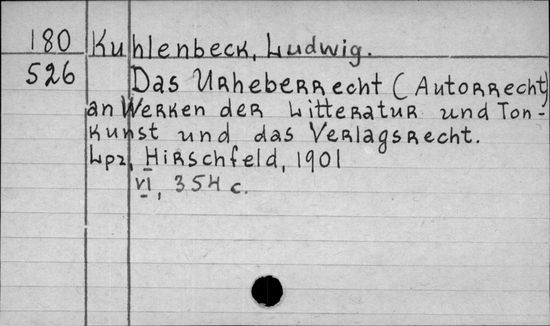 180 Kuhlenbeck, Ludwig.
526 Das Urheberrecht (Autorrecht)
an Werken der Litteratur und Ton-
kunst und das Verlagsrecht.
Lpz, Hirschfeld, 1901
VI, 354 c.